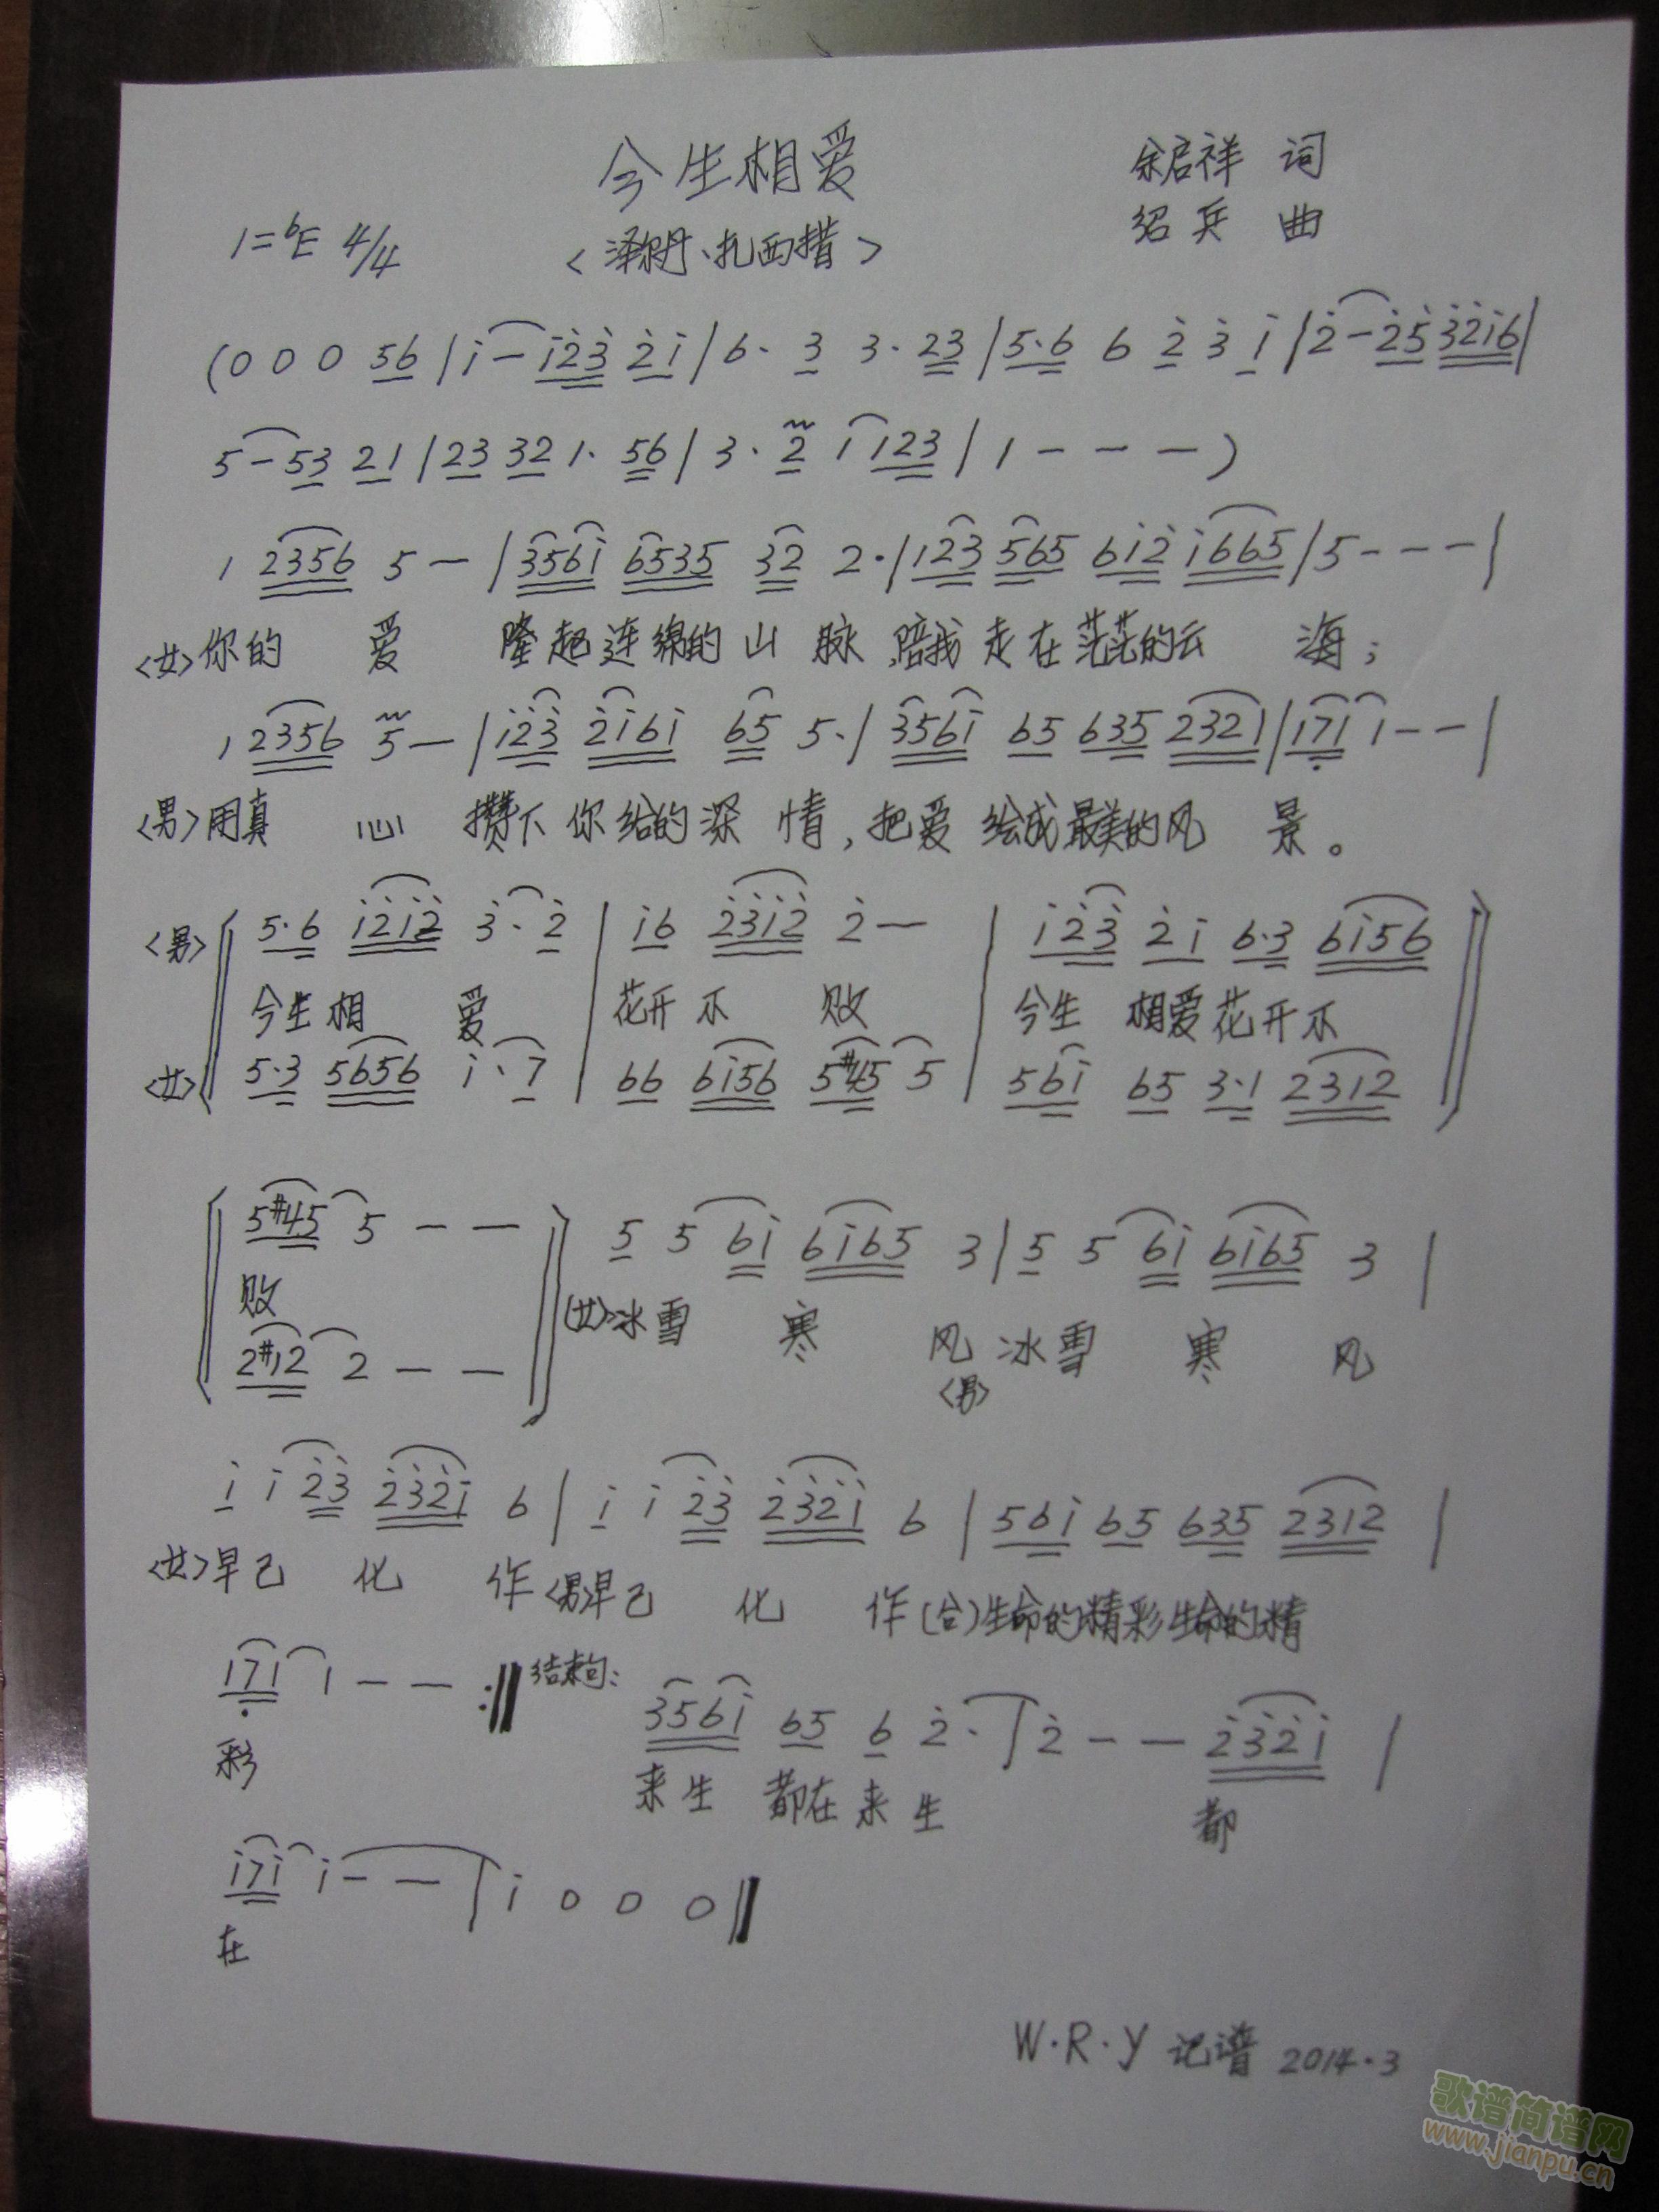 今生相爱
余启祥 词
1=bE 4/4
<泽尔丹、扎西措>
绍兵 曲
(0 0 0 56 | i - i23 2i | 6· 3 3· 23 | 5·6 6 2 3 i | 2 - 25 32i6 |
5 - 53 21 | 23 32 1· 56 | 3· 2 1 123 | 1 - - - )
1 2356 5 - | 356i 6535 32 2· | 123 565 6i2 i665 | 5 - - - |
<女>你的 爱 隆起连绵的山 脉,陪我走在茫茫的云 海;
1 2356 5 - | i23 2i6i 65 5· | 356i 65 635 2321 | 171 1 - - |
<男>用真 心 攒下你给的深 情,把爱绘成最美的风 景。
<男> 5·6 i2i2 3·2 | i6 23i2 2 - | i23 2i 6·3 6i56
今生相 爱 花开不 败 今生 相爱花开不
<女> 5·3 5656 i·7 | 66 6i56 5#45 5 | 56i 65 3·1 2312
5#45 5 - - 5 5 6i 6i65 3 | 5 5 6i 6i65 3 |
败 (女)冰雪 寒 风 冰雪 寒 风
2#12 2 - - <男>
i i 23 232i 6 | i i 23 232i 6 | 56i 65 635 2312 |
<女>早已 化 作<男>早已 化 作(合)生命的精彩生命的精
171 1 - - :‖ 结束句: 356i 65 6 2· | 2 - - 232i |
彩 来生 都在来生 都
i7i i - - | i 0 0 0 ‖
在
W·R·Y 记谱 2014·3
歌谱简谱网
www.jianpu.cn